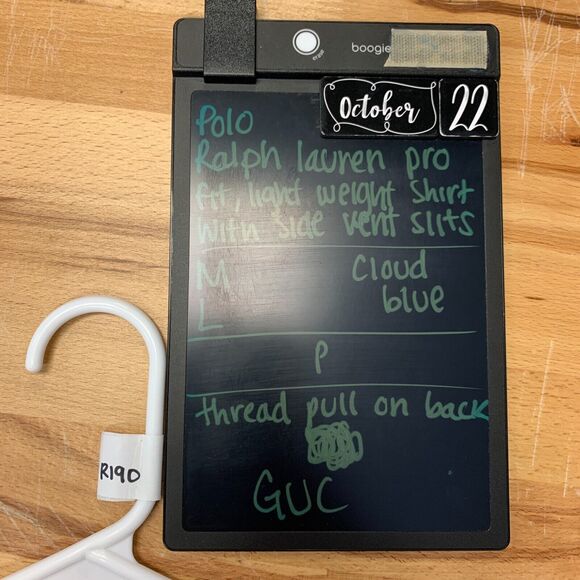 erase
boogie
October 22
Polo
Ralph lauren pro
fit, light weight shirt
with side vent slits
M cloud
L blue
P
thread pull on back
GUC
R190